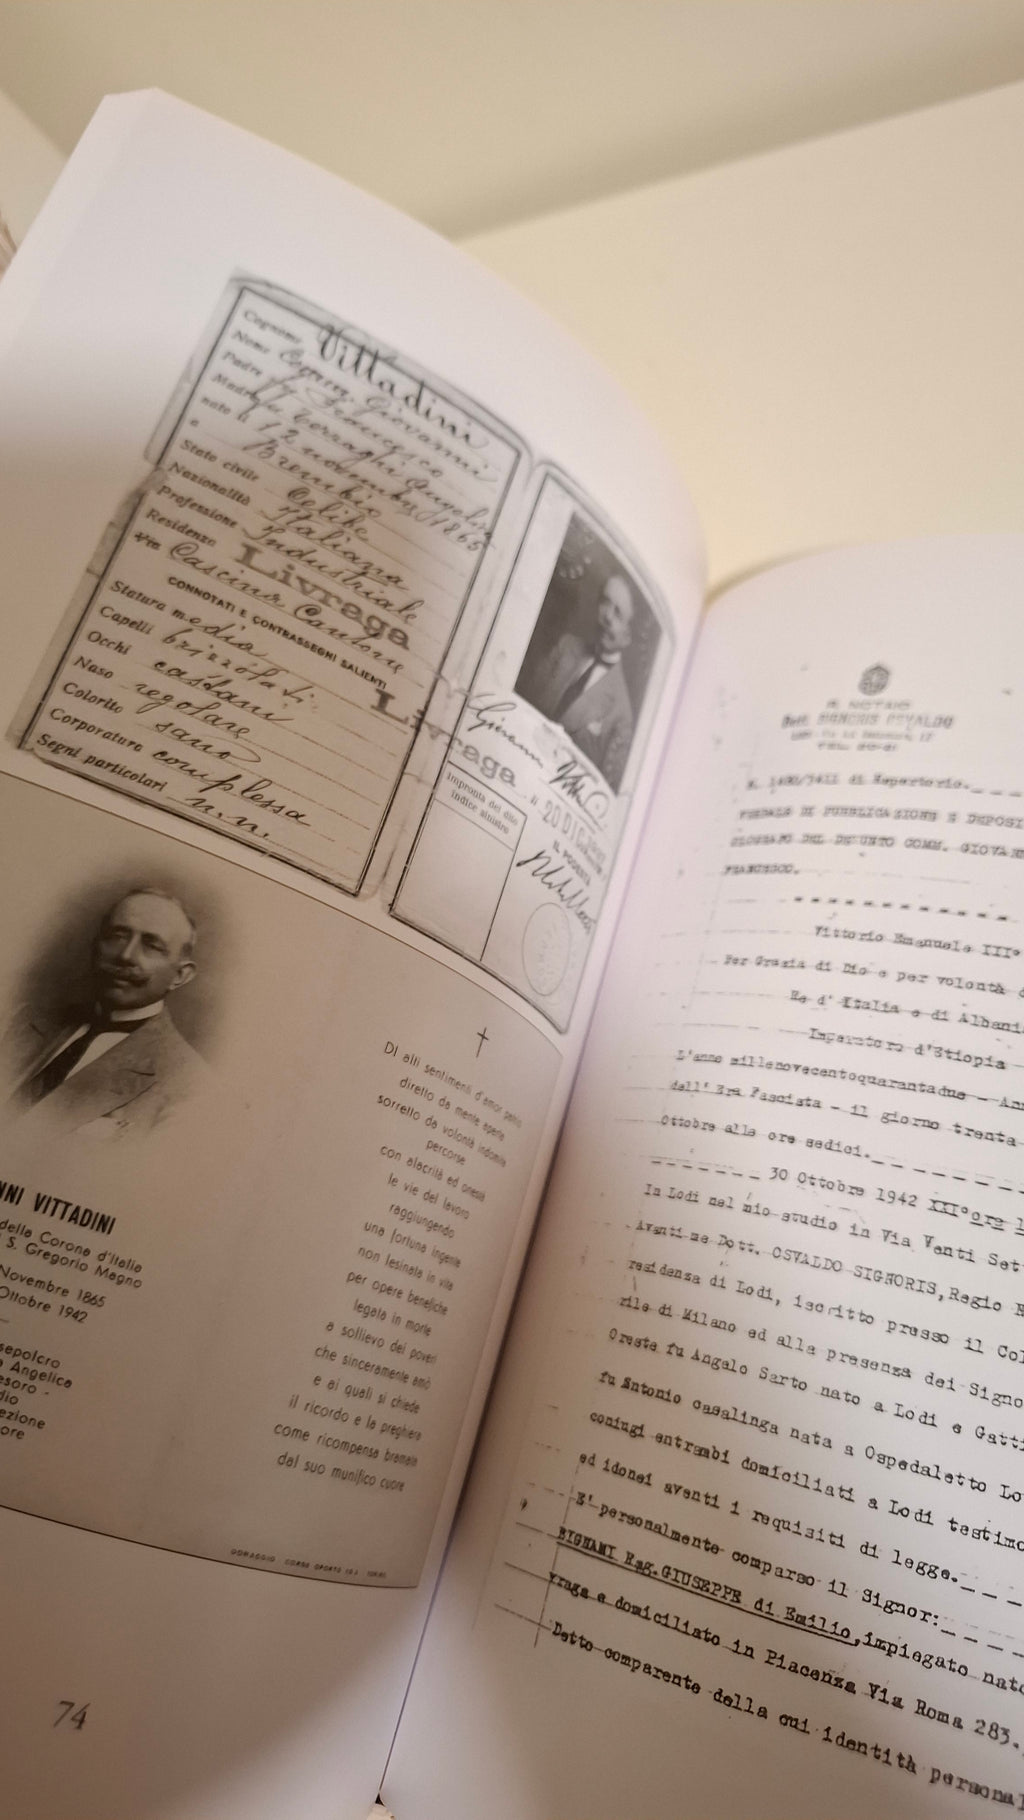 Cognome Vittadini
Nome Comm. Giovanni
Padre fu Francesco
Madre fu Terraghi Angelica
nato il 12 novembre 1865
a Brembio
Stato civile Celibe
Nazionalità Italiana
Professione Industriale
Residenza Livraga
Via Cascina Cantone
CONNOTATI E CONTRASSEGNI SALIENTI
Statura media
Capelli brizzolati
Occhi castani
Naso regolare
Colorito sano
Corporatura complessa
Segni particolari n.n.
Livraga
Giovanni
Impronta del dito
indice sinistro
20 DIC
IL PODESTÀ
NNI VITTADINI
della Corona d'Italia
S. Gregorio Magno
Novembre 1865
Ottobre 1942
sepolcro
Angelica
esoro -
dio
ezione
ore
Di alti sentimenti d'amor patrio
diretto da mente aperta
sorretto da volontà indomita
percorse
con alacrità ed onestà
le vie del lavoro
raggiungendo
una fortuna ingente
non lesinata in vita
per opere benefiche
legata in morte
a sollievo dei poveri
che sinceramente amò
e ai quali si chiede
il ricordo e la preghiera
come ricompensa bramata
dal suo munifico cuore
74
R. NOTAIO
Dott. SIGNORIS OSVALDO
di Repertorio.
VERBALE DI PUBBLICAZIONE E DEPOSI
OLOGRAFO DEL DEFUNTO COMM. GIOVAN
FRANCESCO.
Vittorio Emanuele III°
Per Grazia di Dio e per volontà d
Re d'Italia e di Albani
Imperatore d'Etiopia
L'anno millenovecentoquarantadue - Ann
dell'Era Fascista - il giorno trenta
Ottobre alle ore sedici.
30 Ottobre 1942 XXI° ore 1
In Lodi nel mio studio in Via Venti Set
Avanti me Dott. OSVALDO SIGNORIS, Regio N
residenza di Lodi, iscritto presso il Col
rile di Milano ed alla presenza dei Signo
Oreste fu Angelo Sarto nato a Lodi e Gatti
fu Antonio casalinga nata a Ospedaletto Lo
coniugi entrambi domiciliati a Lodi testimo
ed idonei aventi i requisiti di legge.
E' personalmente comparso il Signor:
BIGNAMI Rag. GIUSEPPE di Emilio, impiegato nato
vraga e domiciliato in Piacenza Via Roma 283.
Detto comparente della cui identità personal